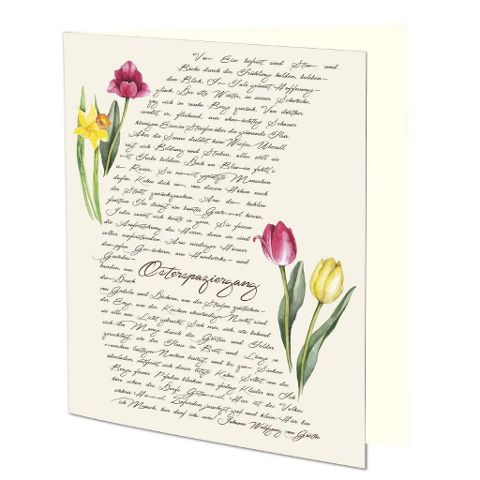 Vom Eise befreit sind Strom und
Bäche durch des Frühlings holden, beleben-
den Blick, Im Tale grünet Hoffnungs-
glück. Der alte Winter, in seiner Schwäche,
zog sich in rauhe Berge zurück. Von dorther
sendet er, fliehend, nur ohnmächtige Schauer
körnigen Eises in Streifen über die grünende Flur.
Aber die Sonne duldet kein Weißes, Überall
regt sich Bildung und Streben, alles will sie
mit Farbe beleben. Doch an Blumen fehlt's
im Revier, Sie nimmt geputzte Menschen
dafür. Kehre dich um, von diesen Höhen nach
der Stadt zurückzusehen. Aus dem hohlen
finstern Tor dringt ein buntes Gewimmel hervor.
Jeder sonnt sich heute so gern. Sie feiern
die Auferstehung des Herrn, denn sie sind
selber auferstanden. Aus niedriger Häuser
dumpfen Gemächern, aus Handwerks- und
Gewerbes-
banden, aus
Osterspaziergang
dem Druck
von Giebeln und Dächern, aus der Straßen quetschender
Enge, aus der Kirchen ehrwürdiger Nacht sind
sie alle ans Licht gebracht. Sieh nur, sieh, wie behend
sich die Menge durch die Gärten und Felder
zerschlägt, wie der Fluss in Breit und Länge so
manchen lustigen Nachen bewegt, und bis zum Sinken
überladen, entfernt sich dieser letzte Kahn. Selbst von des
Berges fernen Pfaden blinken uns farbige Kleider an. Ich
höre schon des Dorfs Getümmel. Hier ist des Volkes
wahrer Himmel. Zufrieden jauchzet groß und klein: Hier bin
ich Mensch, hier darf ichs sein! Johann Wolfgang von Goethe